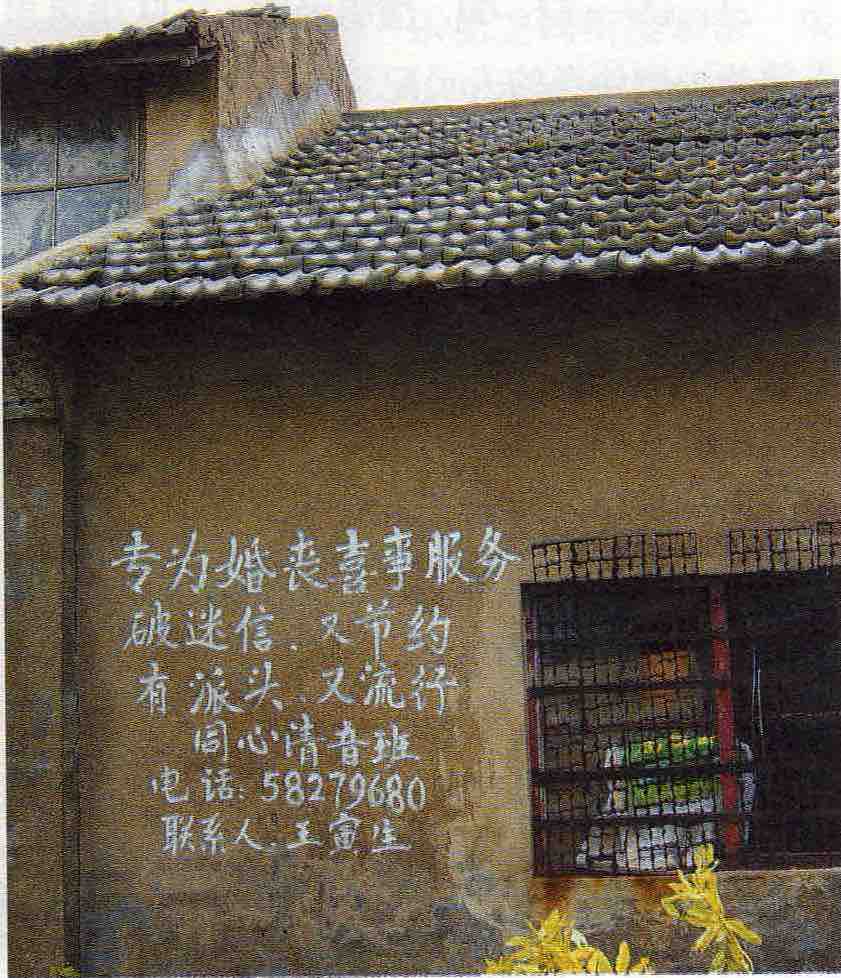 专为婚丧喜事服务
破迷信、又节约
有派头、又流行
同心清音班
电话:58279680
联系人:王寅生